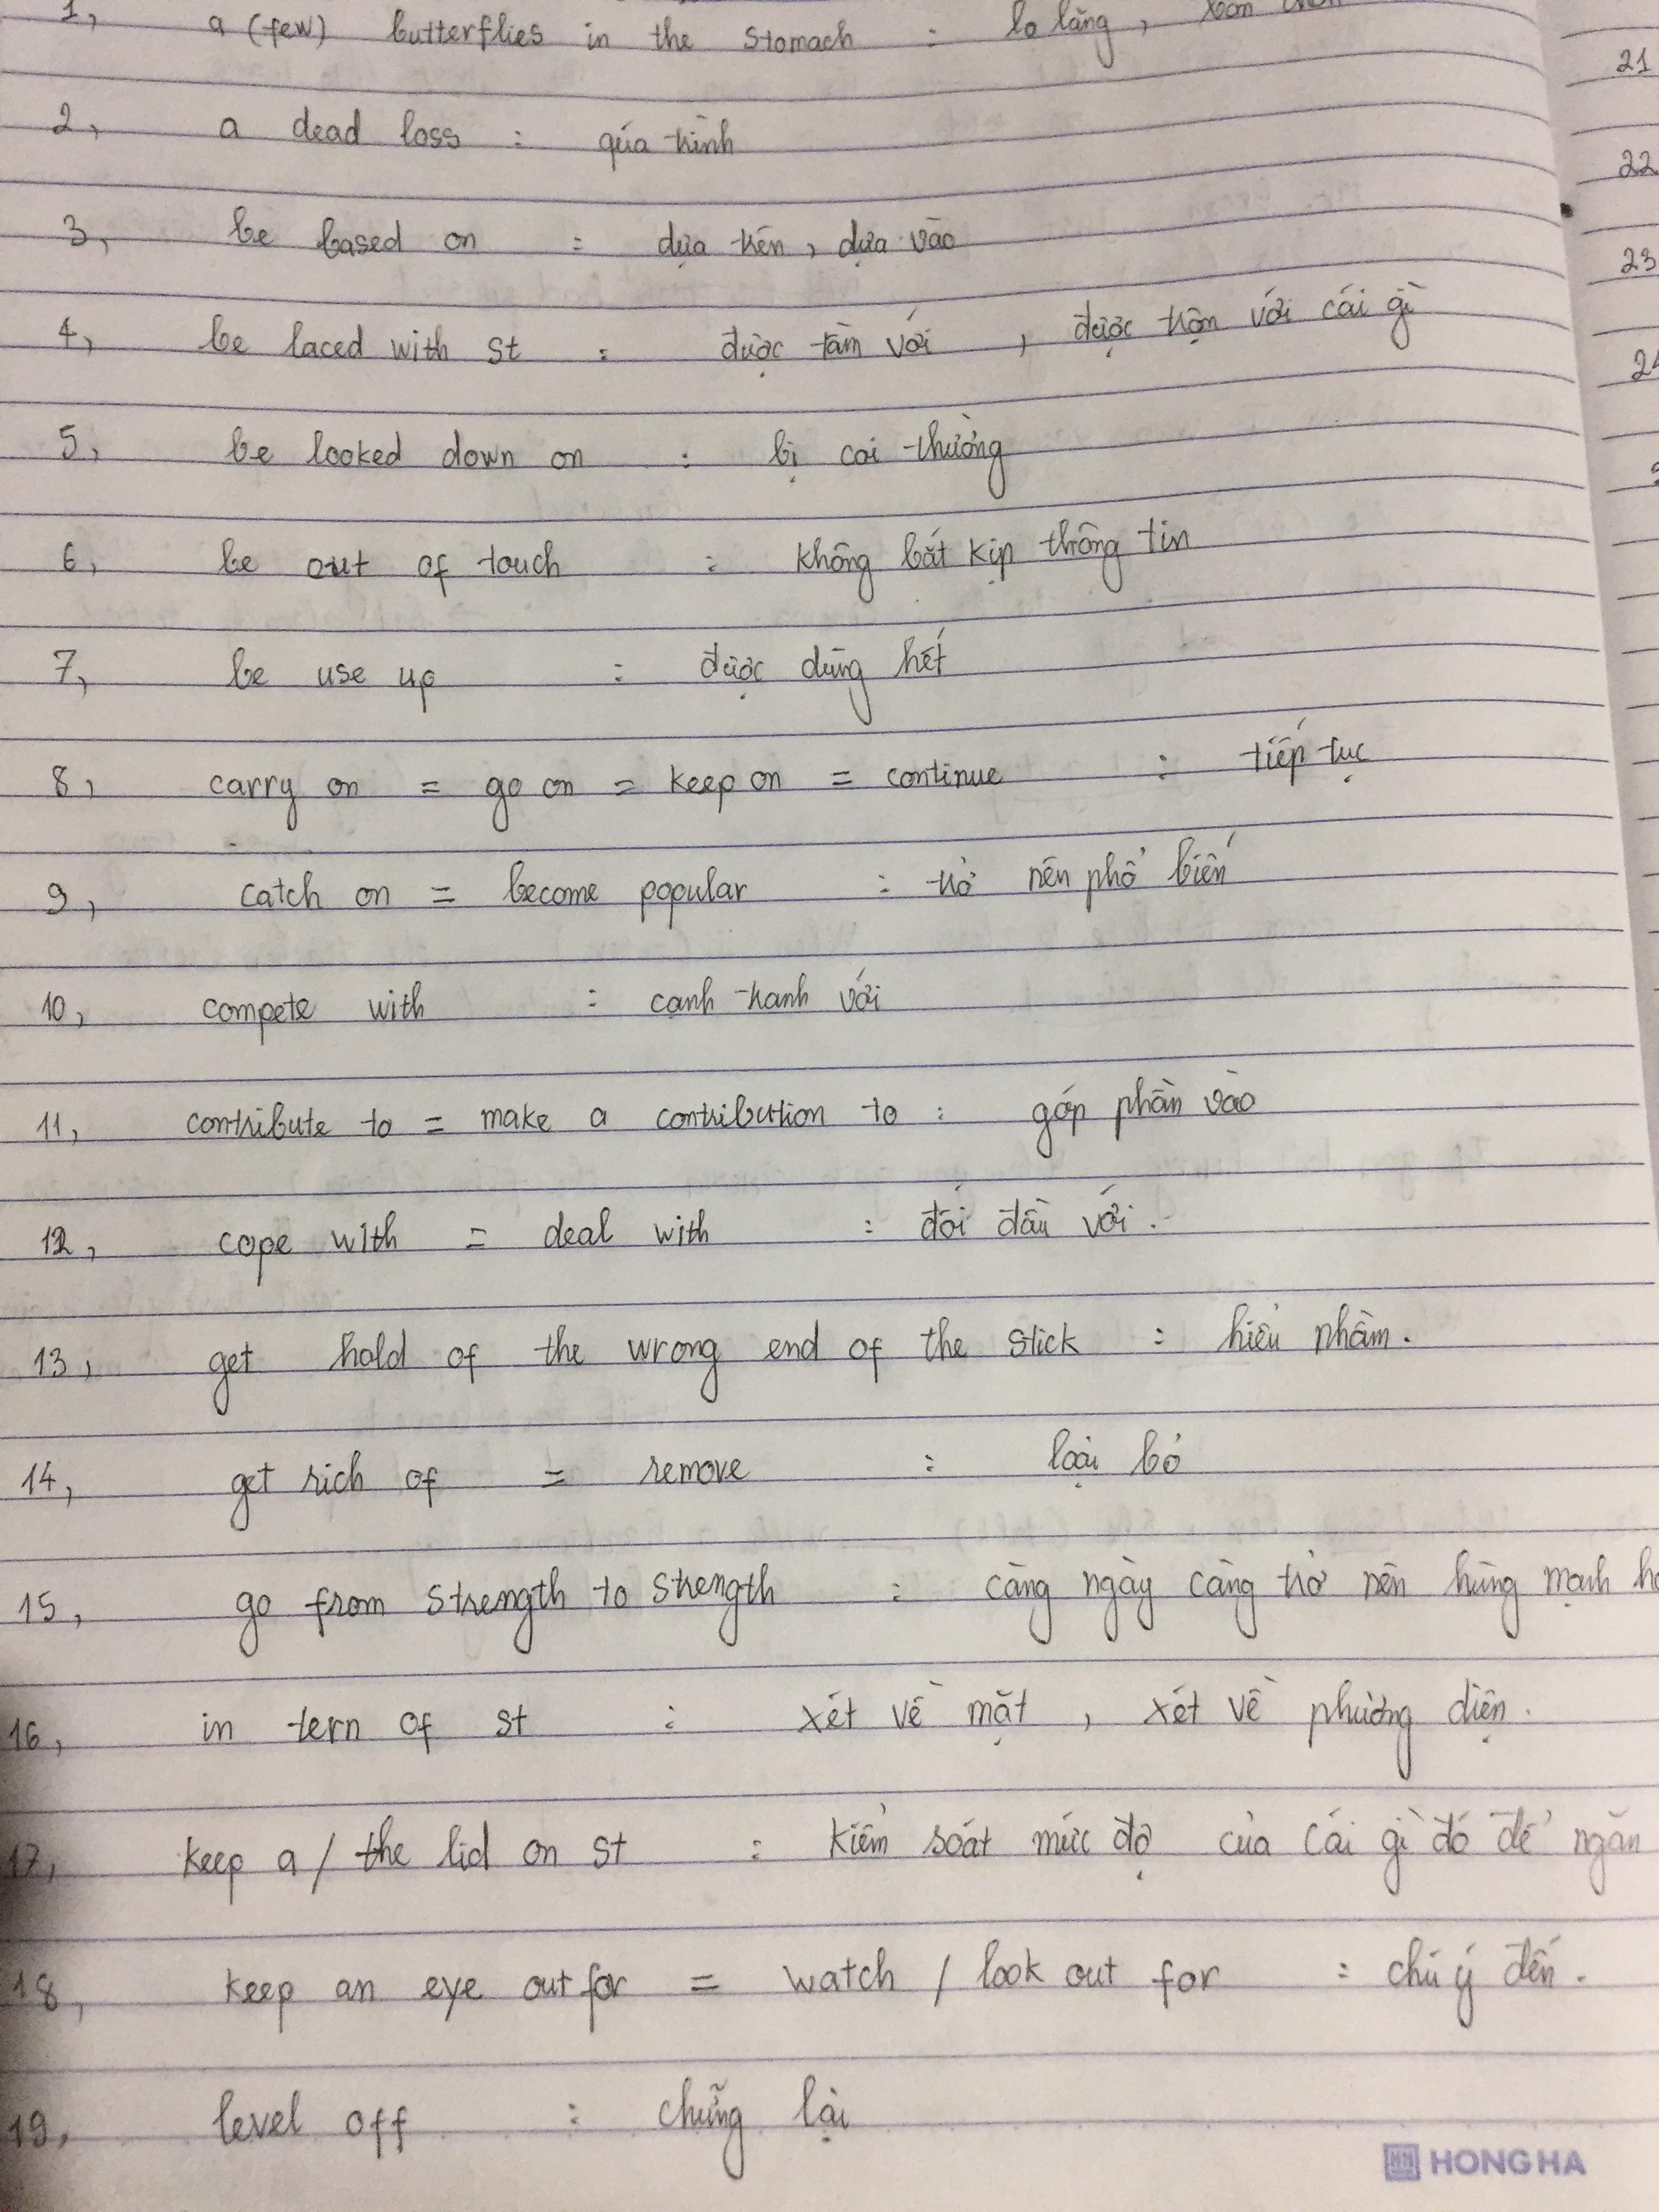 1, a (few) butterflies in the stomach : lo lắng,
2, a dead loss : qúa trình
3, be based on : dựa trên, dựa vào
4, be laced with st : được tẩm với, được trộn với cái gì
5, be looked down on : bị coi thường
6, be out of touch : không bắt kịp thông tin
7, be use up : được dùng hết
8, carry on = go on = keep on = continue : tiếp tục
9, catch on = become popular : trở nên phổ biến
10, compete with : cạnh tranh với
11, contribute to = make a contribution to : góp phần vào
12, cope with = deal with : đối đầu với.
13, get hold of the wrong end of the stick : hiểu nhầm.
14, get rich of = remove : loại bỏ
15, go from strength to strength : càng ngày càng trở nên hùng mạnh
16, in tern of st : xét về mặt, xét về phương diện.
17, keep a / the lid on st : kiểm soát mức độ của cái gì đó để ngăn
18, keep an eye out for = watch / look out for : chú ý đến.
19, level off : chững lại
HONG HA
21
22
23